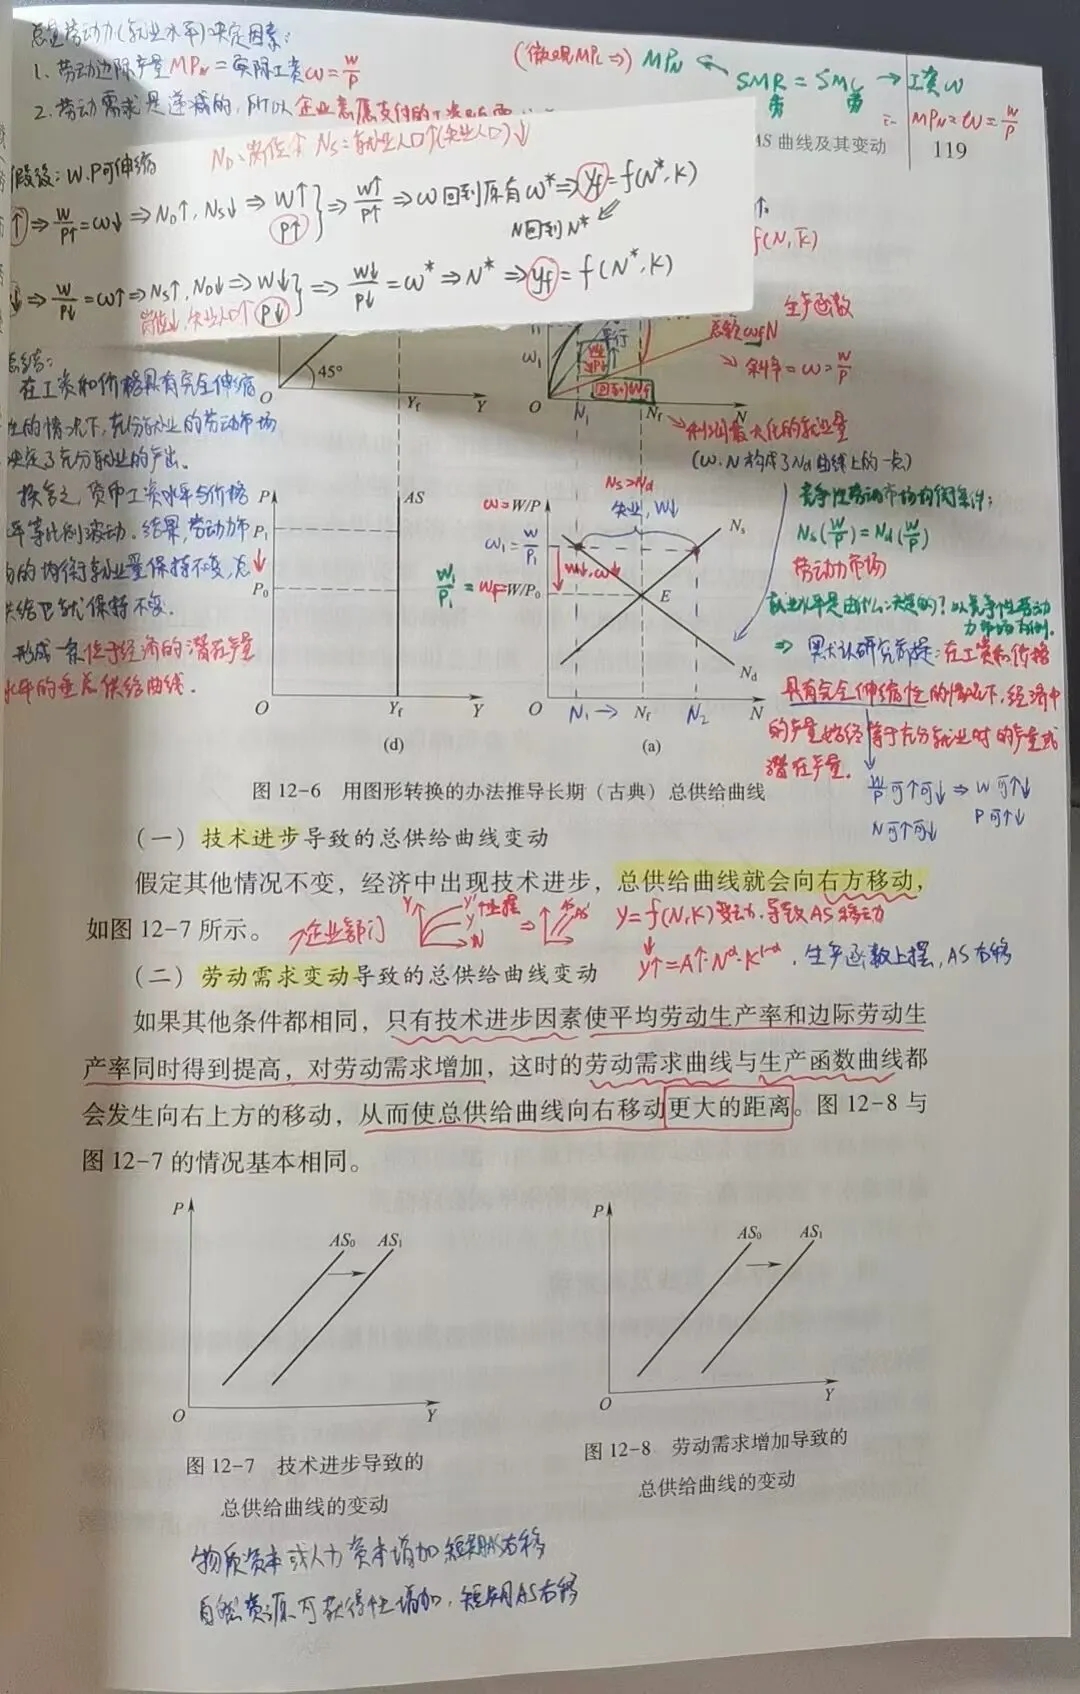 总量劳动力(就业水平)决定因素:
1. 劳动边际产量MPN = 实际工资ω = W/P
2. 劳动需求是递减的, 所以企业愿意支付的
(微观MPL⇒) MPN
SMR = SMC → 工资W
劳 劳
MPN = ω = W/P
AS 曲线及其变动 119
ND:岗位↑ NS:就业人口↑(失业人口)↓
假设: W.P可伸缩
↑⇒ W/P↑ = ω↓ ⇒ ND↑, NS↓ ⇒ W↑ P↑ } ⇒ W↑/P↑ ⇒ ω回到原有ω* ⇒ yf = f(N*, K)
N回到N*
↓⇒ W/P↓ = ω↑ ⇒ NS↑, ND↓ ⇒ W↓ P↓ } ⇒ W↓/P↓ = ω* ⇒ N* ⇒ yf = f(N*, K)
岗位↓, 失业人口↑
f(N, K̄)
生产函数
总额ωfN
⇒ 斜率 = ω = W/P
平行
ω1
45°
O Yf Y
O N1 Nf N
利润最大化的就业量
(ω.N构成了Nd曲线上的一点)
总结:
在工资和价格具有完全伸缩
性的情况下, 充分就业的劳动市场
决定了充分就业的产出。
换言之, 货币工资水平与价格
水平等比例波动. 结果, 劳动力市
场的均衡就业量保持不变, 总
供给也就保持不变.
形成一条位于经济的潜在产量
水平的垂直供给曲线.
P AS
P1
P0
O Yf Y
(d)
ω = W/P
ω1 = W/P1
W1/P1 = ωf = W/P0
NS>Nd
失业, W↓
W↓, ω↓
Ns
E
Nd
O N1 → Nf ← N2 N
(a)
竞争性劳动市场均衡条件:
Ns(W/P) = Nd(W/P)
劳动力市场
就业水平是由什么决定的? 以竞争性劳动
力市场为例.
⇒ 默认研究前提: 在工资和价格
具有完全伸缩性的情况下, 经济中
的产量始终等于充分就业时的产量或
潜在产量.
W/P 可↑可↓ ⇒ W可↑↓
N可↑可↓ P可↑↓
图 12-6 用图形转换的办法推导长期（古典）总供给曲线
（一）技术进步导致的总供给曲线变动
假定其他情况不变，经济中出现技术进步，总供给曲线就会向右方移动，
如图 12-7 所示。
↗企业部门
Y Y' 上摆 Y N ⇒ AS AS'
y = f(N,K)变动, 导致AS移动
y↑ = A↑·N^α·K^1-α, 生产函数上摆, AS右移
（二）劳动需求变动导致的总供给曲线变动
如果其他条件都相同，只有技术进步因素使平均劳动生产率和边际劳动生
产率同时得到提高，对劳动需求增加，这时的劳动需求曲线与生产函数曲线都
会发生向右上方的移动，从而使总供给曲线向右移动更大的距离。图 12-8 与
图 12-7 的情况基本相同。
P AS0 AS1
O Y
P AS0 AS1
O Y
图 12-7 技术进步导致的
总供给曲线的变动
图 12-8 劳动需求增加导致的
总供给曲线的变动
物质资本或人力资本增加 短期AS右移
自然资源可获得性增加, 短期AS右移